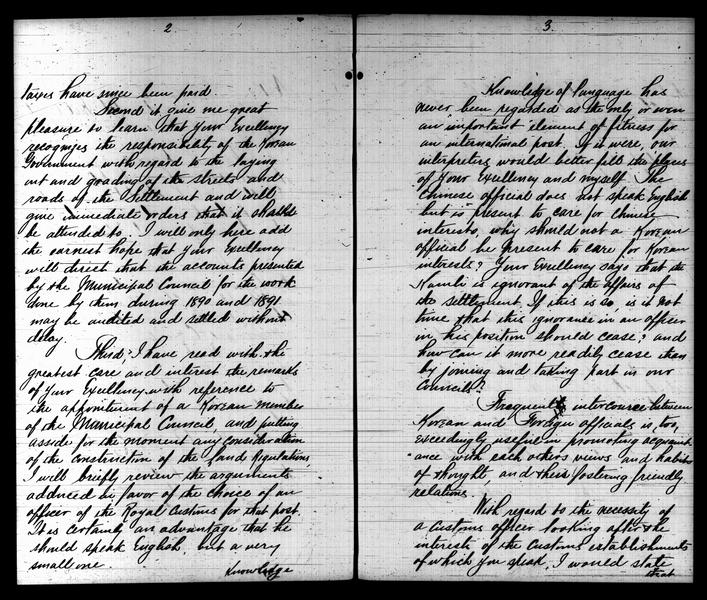 2
taxes have since been paid.
Second it give me great
pleasure to learn that Your Excellency
recognizes the responsibility of the Korean
Government with regard to the laying
out and grading of the streets and
roads of the Settlement and will
give immediate orders that it shall
be attended to. I will only here add
the earnest hope that Your Excellency
will direct that the accounts presented
by the Municipal Council for the work
done by them during 1890 and 1891
may be audited and settled without
delay.
Third, I have read with the
greatest care and interest the remarks
of Your Excellency with reference to
the appointment of a Korean member
of the Municipal Council, and putting
asside for the moment any consideration
of the construction of the Land Regulations,
I will briefly review the arguments
adduced in favor of the choice of an
officer of the Royal Customs for that post.
It is certainly an advantage that he
should speak English, but a very
small one.
Knowledge
3.
Knowledge of language has
never been regarded as the only or even
an important element of fitness for
an international post. If it were, our
interpreters would better fill the places
of Your Excellency and myself. The
Chinese official does not speak English
but is present to care for Chinese
interests, why should not a Korean
official be present to care for Korean
interests? Your Excellency says that the
Kamli is ignorant of the affairs of
the settlement. If this is so, is it not
time that this ignorance in an officer
in his position should cease? and
how can it more readily cease than
by joining and taking part in our
Councils?
Frequent intercourse between
Korean and Foreign officials is, too,
exceedingly useful in promoting acquaint-
ance with each others views and habits
of thought, and their fostering friendly
relations.
With regard to the necessity of
a Customs officer looking after the
interests of the Customs establishments
of which you speak, I would state
that